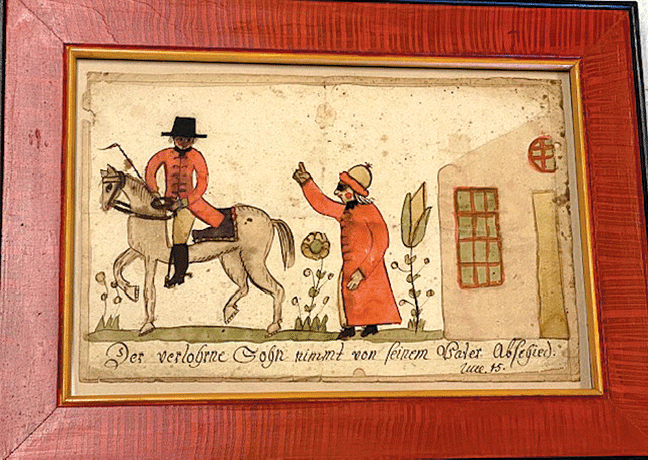 Der verlohrne Sohn nimmt von seinem Vater Abschied.
Luce. 15.